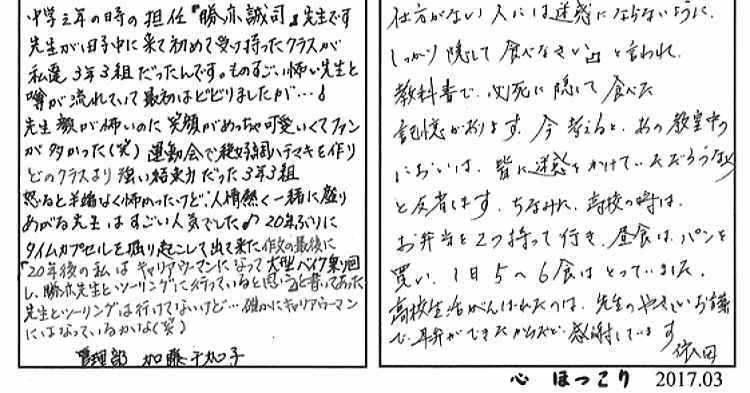 中学3年の時の担任『勝亦誠司』先生です
先生が田子中に来て初めて受け持ったクラスが
私達3年3組だったんです。ものすごい怖い先生と
噂が流れていて最初はビビりましたが…♪
先生 顔が怖いのに笑顔がめっちゃ可愛いくてファン
が多かった(笑) 運動会で絶好調ハチマキを作り
どのクラスより強い結束力だった3年3組
怒ると半端なく怖かったけど、人情熱く一緒に盛り
あがる先生はすごい人気でした♪ 20年ぶりに
タイムカプセルを掘り起こして出て来た作文の最後に
「20年後の私はキャリアウーマンになって大型バイク乗り回
し、勝亦先生とツーリングに行っていると思う」と書いてあった
先生とツーリングは行けてないけど…確かにキャリアウーマン
にはなっているかな(笑)
管理部 加藤
仕方がない 人には迷惑にならないように、
しっかり隠して食べなさい」と言われ、
教科書で、必死に隠して食べた
記憶があります。今考えると、あの教室中の
においは、皆に迷惑をかけていただろうな
と反省します。ちなみに、高校の時は、
お弁当を2つ持って行き、昼食は、パンを
買い、1日5〜6食はとっていました。
高校生活がんばれたのは、先生のやさしいお言葉
で、早弁ができたからだと、感謝しています
依田
心 ほっこり 2017.03